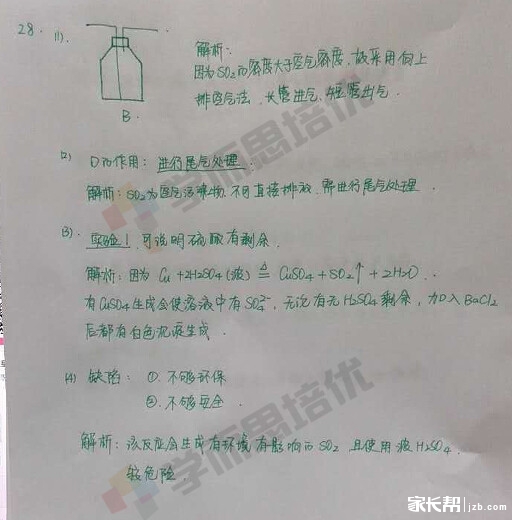 28. (1).
B.
解析:
因为SO₂的密度大于空气密度,故采用向上
排空气法,长管进气,短管出气.
(2) D的作用: 进行尾气处理.
解析: SO₂为空气污染物,不可直接排放,需进行尾气处理.
(3). 实验1 可说明硫酸有剩余.
解析: 因为 Cu + 2H2SO4(浓) ≜ CuSO4 + SO2↑ + 2H2O.
有CuSO4生成会使溶液中有SO₄²⁻, 无论有无H2SO4剩余, 加入BaCl2
后都有白色沉淀生成.
(4) 缺陷: ①. 不够环保
②. 不够安全.
解析: 该反应会生成有环境有影响的SO2, 且使用浓H2SO4.
较危险.
学而思培优
学而思培优
家长帮 jzb.com